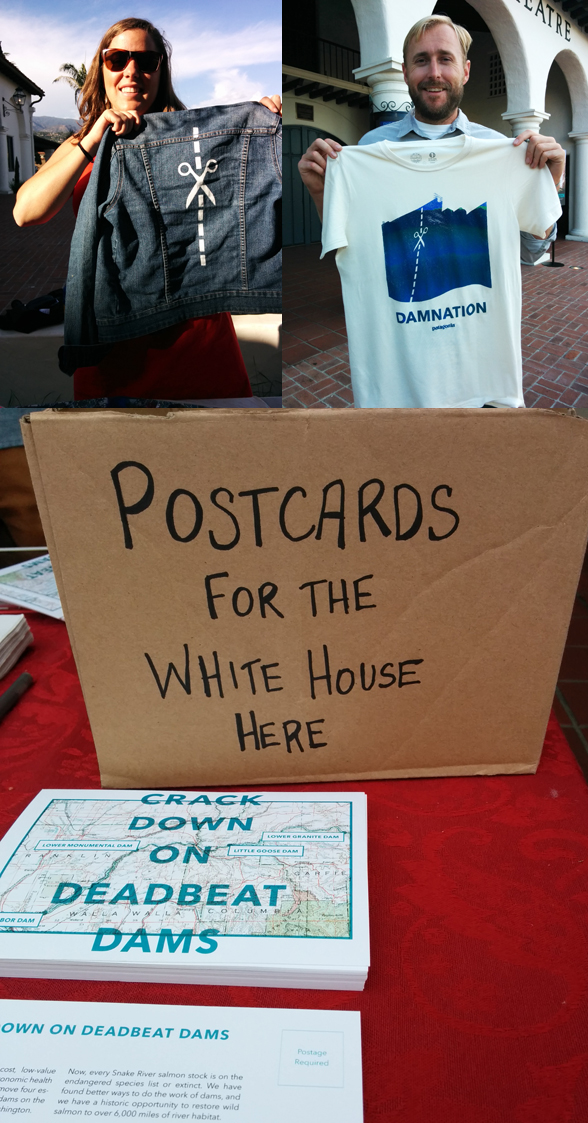 EATRE
DAMNATION
patagonia
POSTCARDS
FOR THE
WHITE HOUSE
HERE
CRACK
DOWN
ON
DEADBEAT
DAMS
LOWER MONUMENTAL DAM
LOWER GRANITE DAM
LITTLE GOOSE DAM
BOR DAM
FRANKLIN
GARFIE
WALLA WALLA COLUMBIA
OWN ON DEADBEAT DAMS
Postage
Required
cost, low-value
onomic health
move four es-
dams on the
hington.
Now, every Snake River salmon stock is on the
endangered species list or extinct. We have
found better ways to do the work of dams, and
we have a historic opportunity to restore wild
salmon to over 6,000 miles of river habitat.